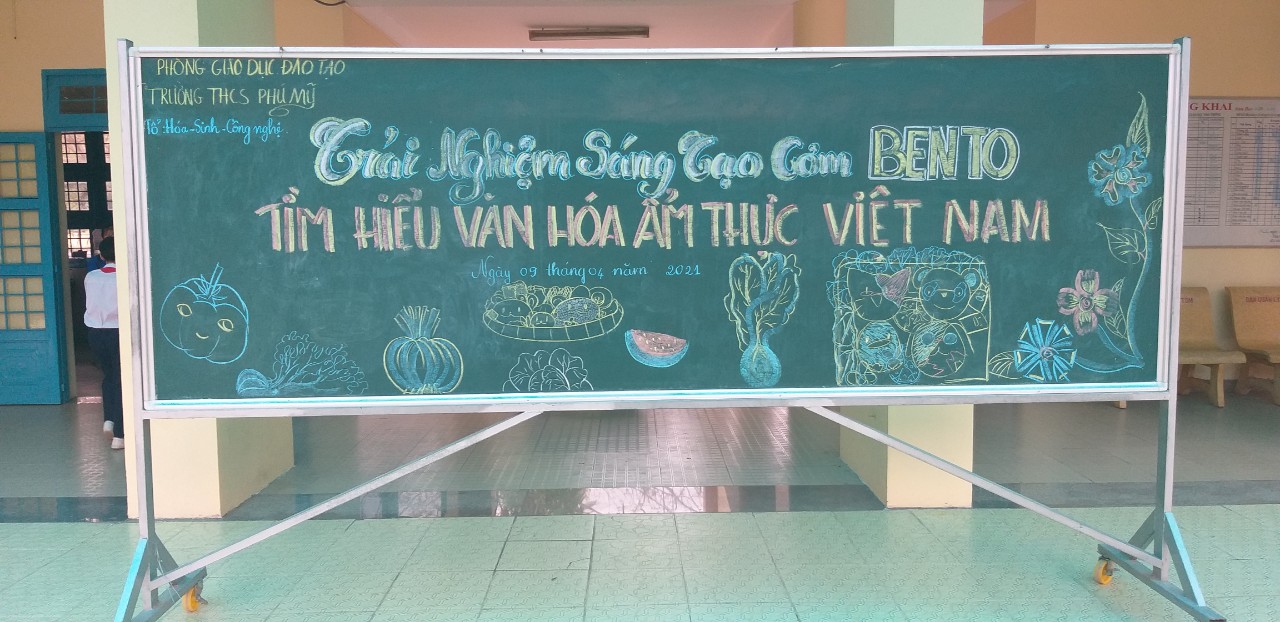 PHÒNG GIÁO DỤC ĐÀO TẠO
TRƯỜNG THCS PHÚ MỸ
Tổ: Hóa-Sinh-Công nghệ.
Trải Nghiệm Sáng Tạo Cơm BENTO
TÌM HIỂU VĂN HÓA ẨM THỰC VIỆT NAM
Ngày 09 tháng 04 năm 2021
KHAI